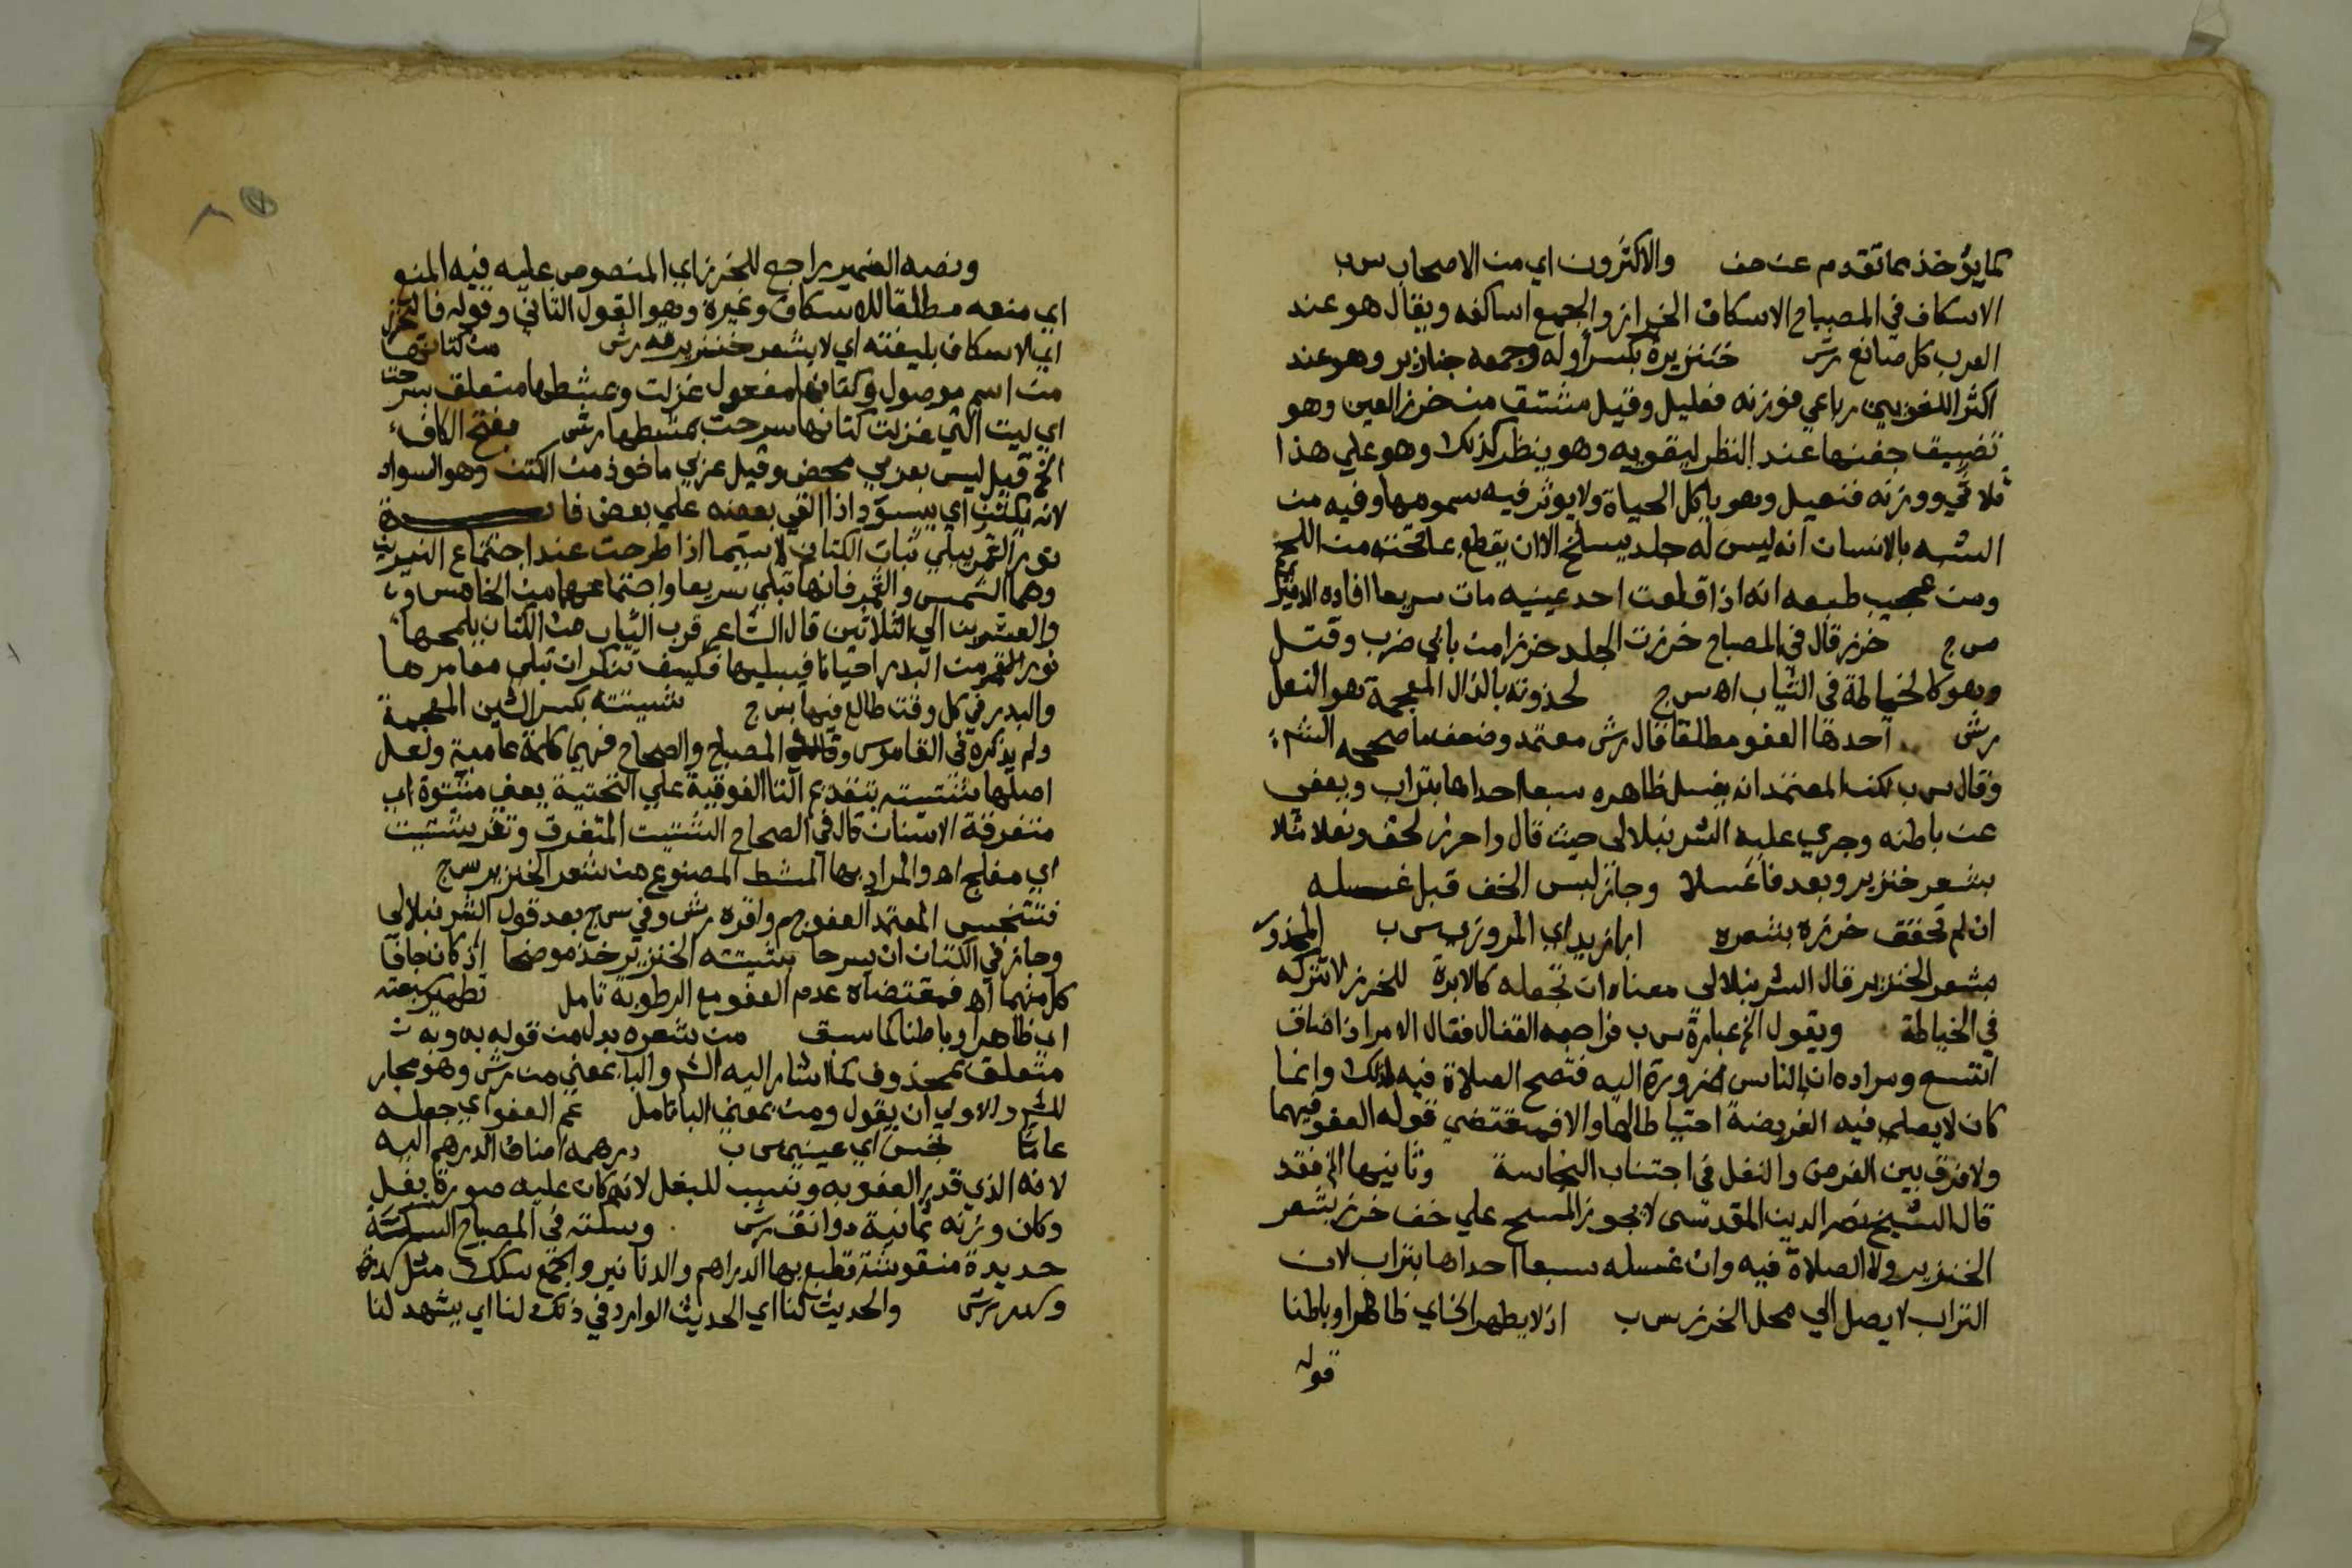 كما يؤخذ مما تقدم عن حف والاكثرون اي من الاصحاب س ب
الاسكاف في المصباح الاسكاف الخراز والجمع اساكفه ويقال هو عند
العرب كل صانع رش خنزيرة بكسر اوله وجمعه خنازير وهو عند
اكثر اللغويين رباعي فوزنه فعليل وقيل مشتق من خزر العين وهو
تضييق جفنها عند النظر ليقويه وهو ينظر كذلك وهو علي هذا
ثلاثي ووزنه فنعيل وهو ياكل الحياة ولا يوثر فيه سمومها وفيه من
الشبه بالانسان انه ليس له جلد يسلخ الا ان يقطع علي تحته من اللحم
ومن عجيب طبعه انه اذا قلعت احد عينيه مات سريعا افاده الدميري
س ج خرز قال في المصباح خرزت الجلد خرزا من بابي ضرب وقتل
وهو كالخياطة في الثياب اه س ج لحذوته بالذال المعجمة هو النعل
رش احدها العفو مطلقا قال رش معتمد وضعف ما صححه الش
وقال س ب لكن المعتمد انه يغسل ظاهره سبعا احداها بتراب ويعفي
عن باطنه وجري عليه الشرنبلالي حيث قال واحرز لخف ونعلا مثلا
بشعر خنزير وبعد فاغسلا وجاز لبس الخف قبل غسله
ان لم تحقق خرزه بشعره ابا زيد اي المروزي س ب المخذو
بشعر الخنزير قال الشرنبلالي معناه ان تجعله كالابرة للخرز لا تتركه
في الخياطة ويقول الخ عبارة س ب فراجعه القفال فقال الامر اذا ضاق
اتسع ومراده ان بالناس ضرورة اليه فتصح الصلاة فيه لذلك وانما
كان لا يصلي فيه الفريضة احتياطا لها والا فمقتضي قوله العفو فيهما
ولا فرق بين الفرض والنفل في اجتناب النجاسة وثانيها الخ فقد
قال الشيخ نصر الدين المقدسي لا يجوز المسح علي خف خرز بشعر
الخنزير ولا الصلاة فيه وان غسله سبعا احداها بتراب لان
التراب لا يصل الي محل الخرز س ب اذ لا يطهر الخ اي ظاهرا وباطنا
قوله
ونصه الضمير راجع للخرز اي المنصوص عليه فيه المنع
اي منعه مطلقا للاسكاف وغيره وهو القول الثاني وقوله فالتخرز
اي الاسكاف بليفته اي لا بشعر خنزير رش من كتانها
من اسم موصول وكتانها مفعول غزلت وبمشطها متعلق سرحت
اي ليت التي غزلت كتانها سرحت بمشطها رش بفتح الكاف
الخ قيل ليس بعربي محض وقيل عربي ماخوذ من الكتن وهو السواد
لانه يكتن اي يسود اذا القي بعضه علي بعض فائدة
نور القمر يبلي ثياب الكتان لا سيما اذا طرحت عند اجتماع النيرين
وهما الشمس والقمر فانها تبلي سريعا واجتماعهما من الخامس و
والعشرين الي الثلاثين قال الشاعر قرب الثياب من الكتان يلمحها
نور القمر من البدر احيانا فيبليها فكيف تنكر ان تبلي معاجرها
والبدر في كل وقت طالع فيها س ج شيتته بكسر الشين المعجمة
ولم يذكره في القاموس وقال المصباح والصحاح فهي كلمة عامية ولعل
اصلها شتيته بتقديم التا الفوقية علي التحتية يعني مشتوة اي
متفرقة الاسنان قال في الصحاح الشتيت المتفرق وثغر شتيت
اي مفلج اه والمراد بها المشط المصنوع من شعر الخنزير س ج
فتنجس المعتمد العفو ج م واقره رش وفي س ج بعد قول الشرنبلالي
وجاز في الكتان ان يسرحا بشيتته الخنزير خذ موضحا اذ كان جافا
كل منهما اه فمقتضاه عدم العفو مع الرطوبة تامل تطهير
اي ظاهرا وباطنا كما سبق من شعره بدل من قوله به وبه
متعلق بمحذوف كما اشار اليه الش والبا بمعني من رش وهو مجار
للش والاولي ان يقول ومن بمعني البا تامل عم العفو اي جعله
عاما نجس اي عيني س ب درهمه اضاف الدرهم اليه
لانه الذي قدر العفو به ونسب للبغل لانه كان عليه صورة بغل
وكان وزنه ثمانية دوانق رش وسكته في المصباح السكة
حديدة منقوشة تطبع بها الدراهم والدنانير والجمع سكك مثل سدرة
وسدر رش والحديث لنا اي الحديث الوارد في ذلك لنا اي يشهد لنا